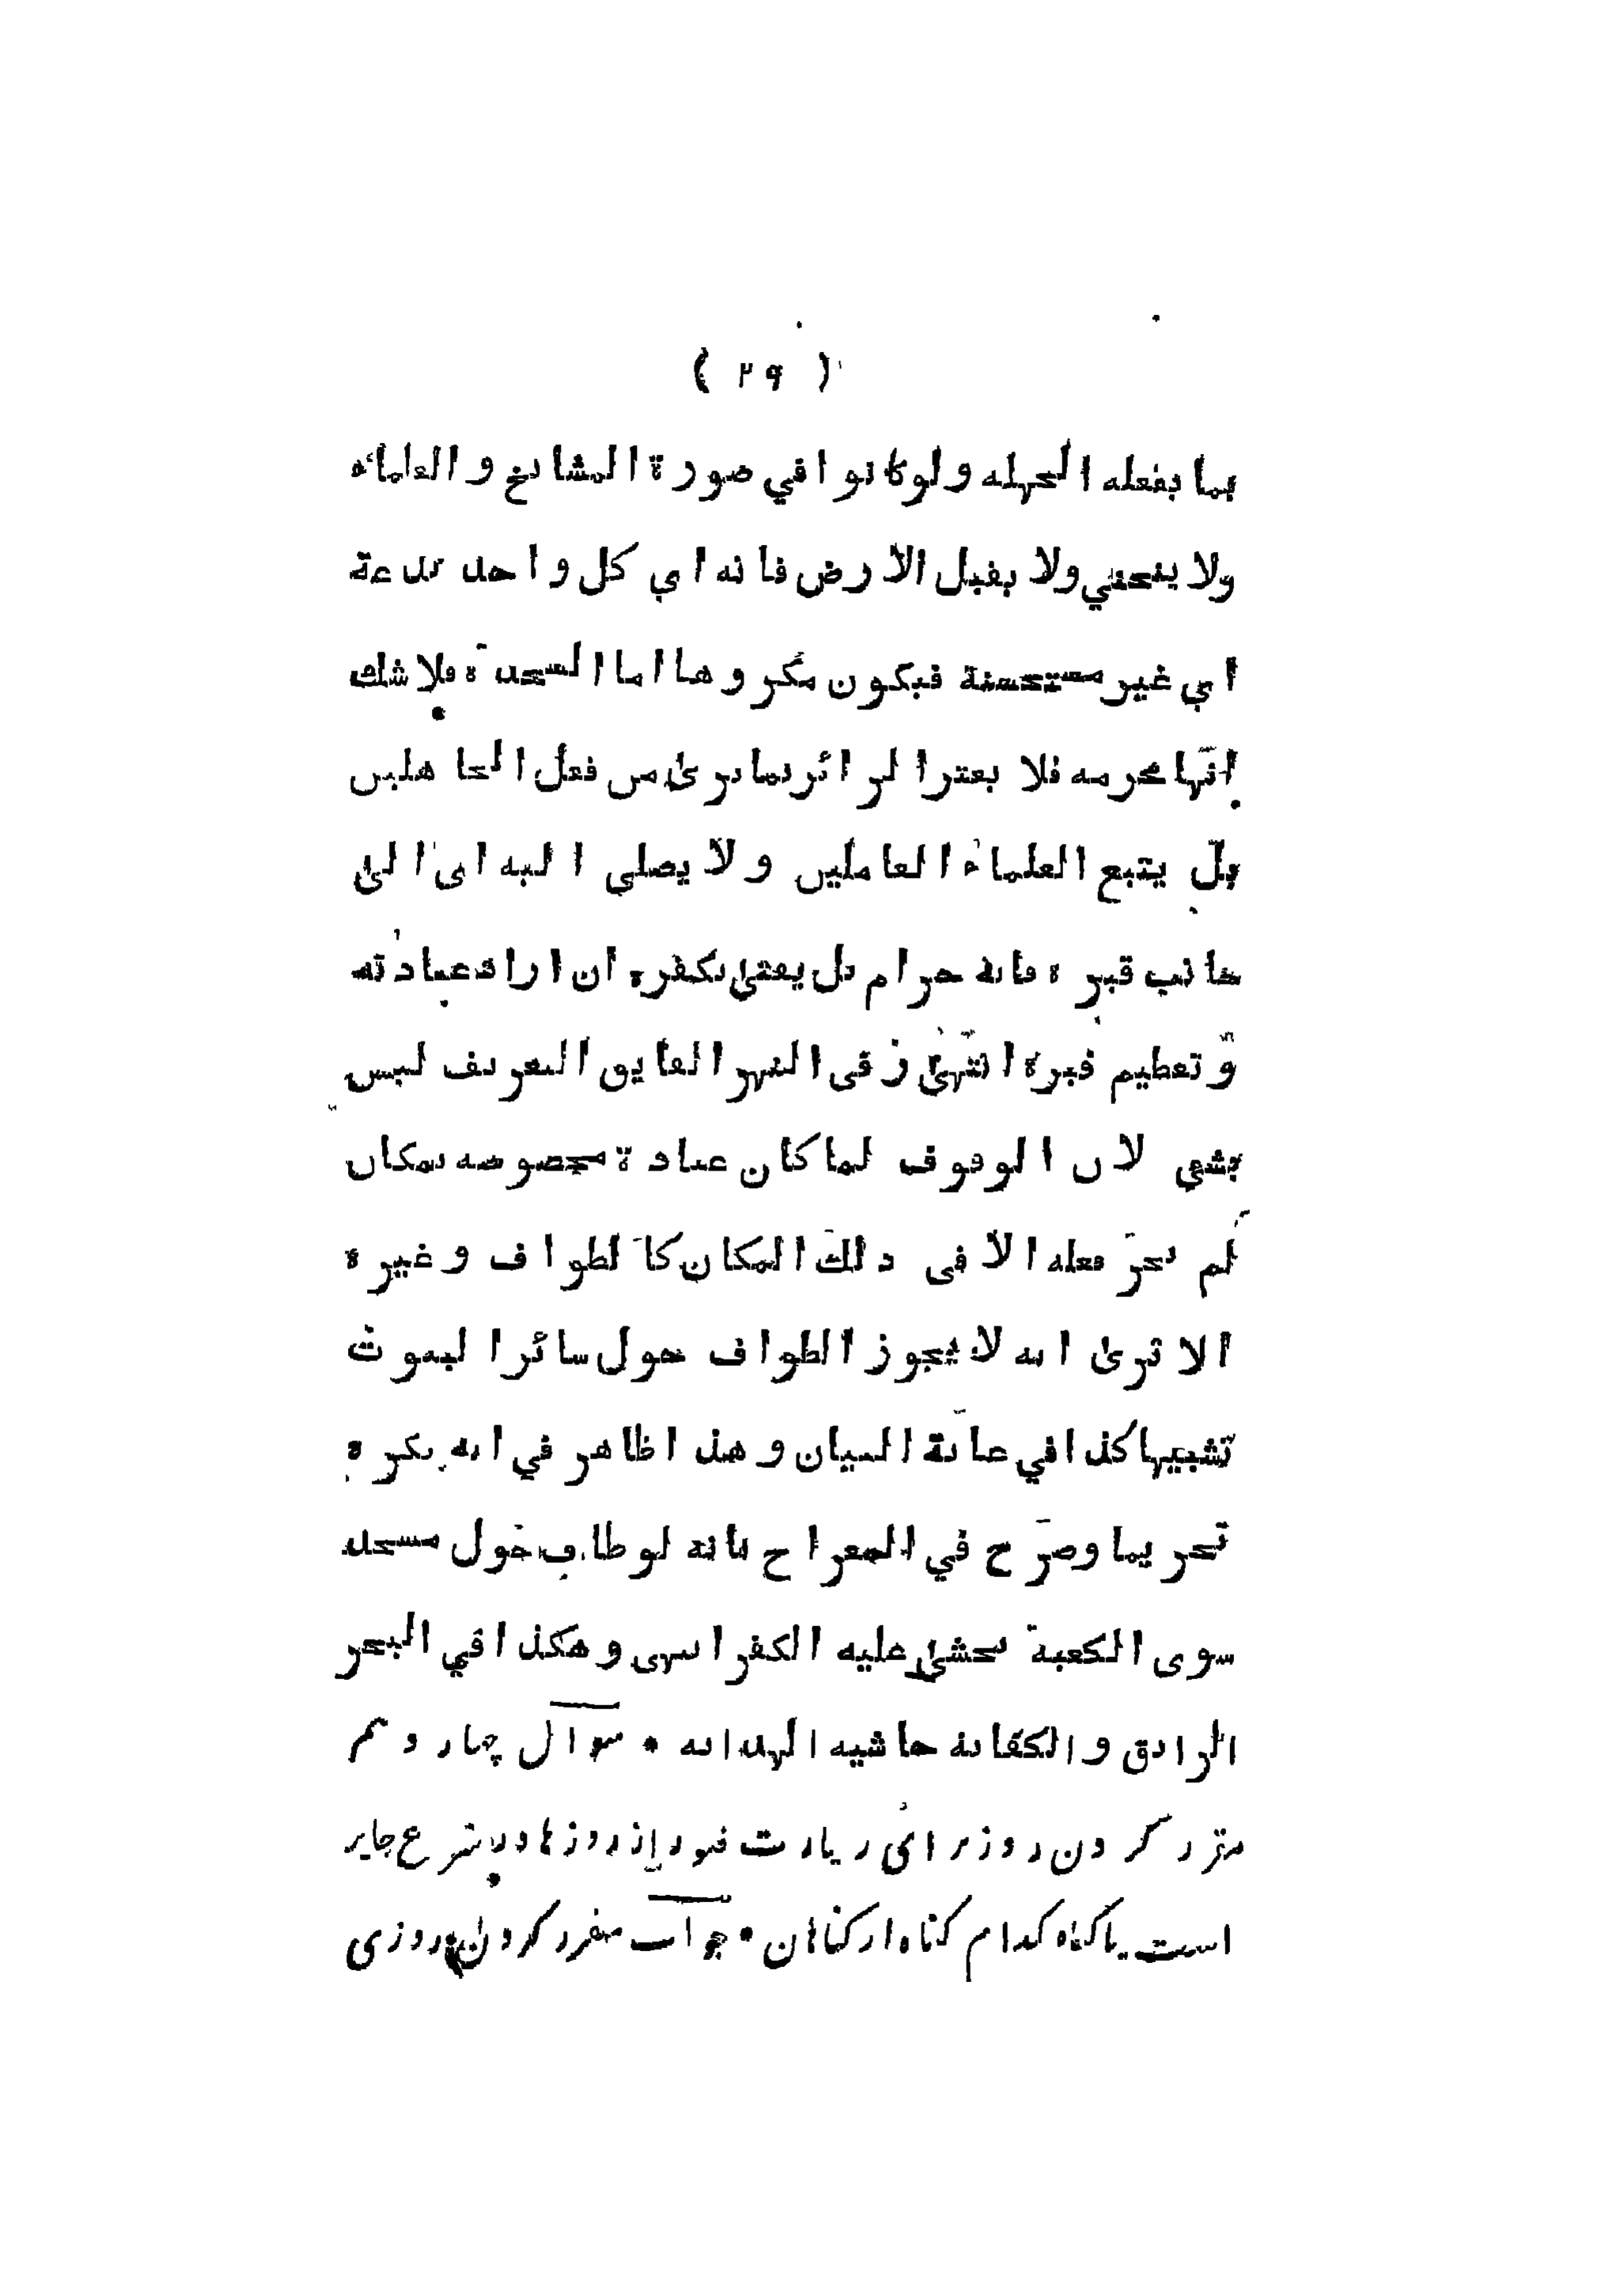 ( ۲۹ )
بما يفعله الجهلة ولو كانوا في صورة المشايخ والعلماء
ولا ينحني ولا يقبل الارض فانه اي كل واحد بدعة
اي غير مستحسنة فيكون مكروها اما السجدة فلا شك
انّها محرمة فلا يغتر الزائر بما يرى من فعل الجاهلين
بل يتبع العلماء العاملين ولا يصلى اليه اى الى
جانب قبره فانه حرام بل يفتى بكفره ان اراد عبادته
و تعظيم قبره انتهى و فى النهر الفايق التعريف ليس
بشي لان الوقوف لما كان عبادة مخصوصة بمكان
لم يجز فعله الا فى ذلك المكان كالطواف وغيره
الا ترى انه لا يجوز الطواف حول سائر البيوت
تشبيها كذا في غاية البيان وهذا ظاهر في انه يكره
تحريما وصرّح في المعراج بانه لو طاف حول مسجد
سوى الكعبة يخشى عليه الكفر انتهى وهكذا في البحر
الرايق والكفاية حاشيه الهدايه • سوال چهاردهم
مقرر کردن روز برای زیارت قبور از روزها در شرع جایز
است یا گناه کدام گناه از گناهان • جواب مقرر کردن روزی